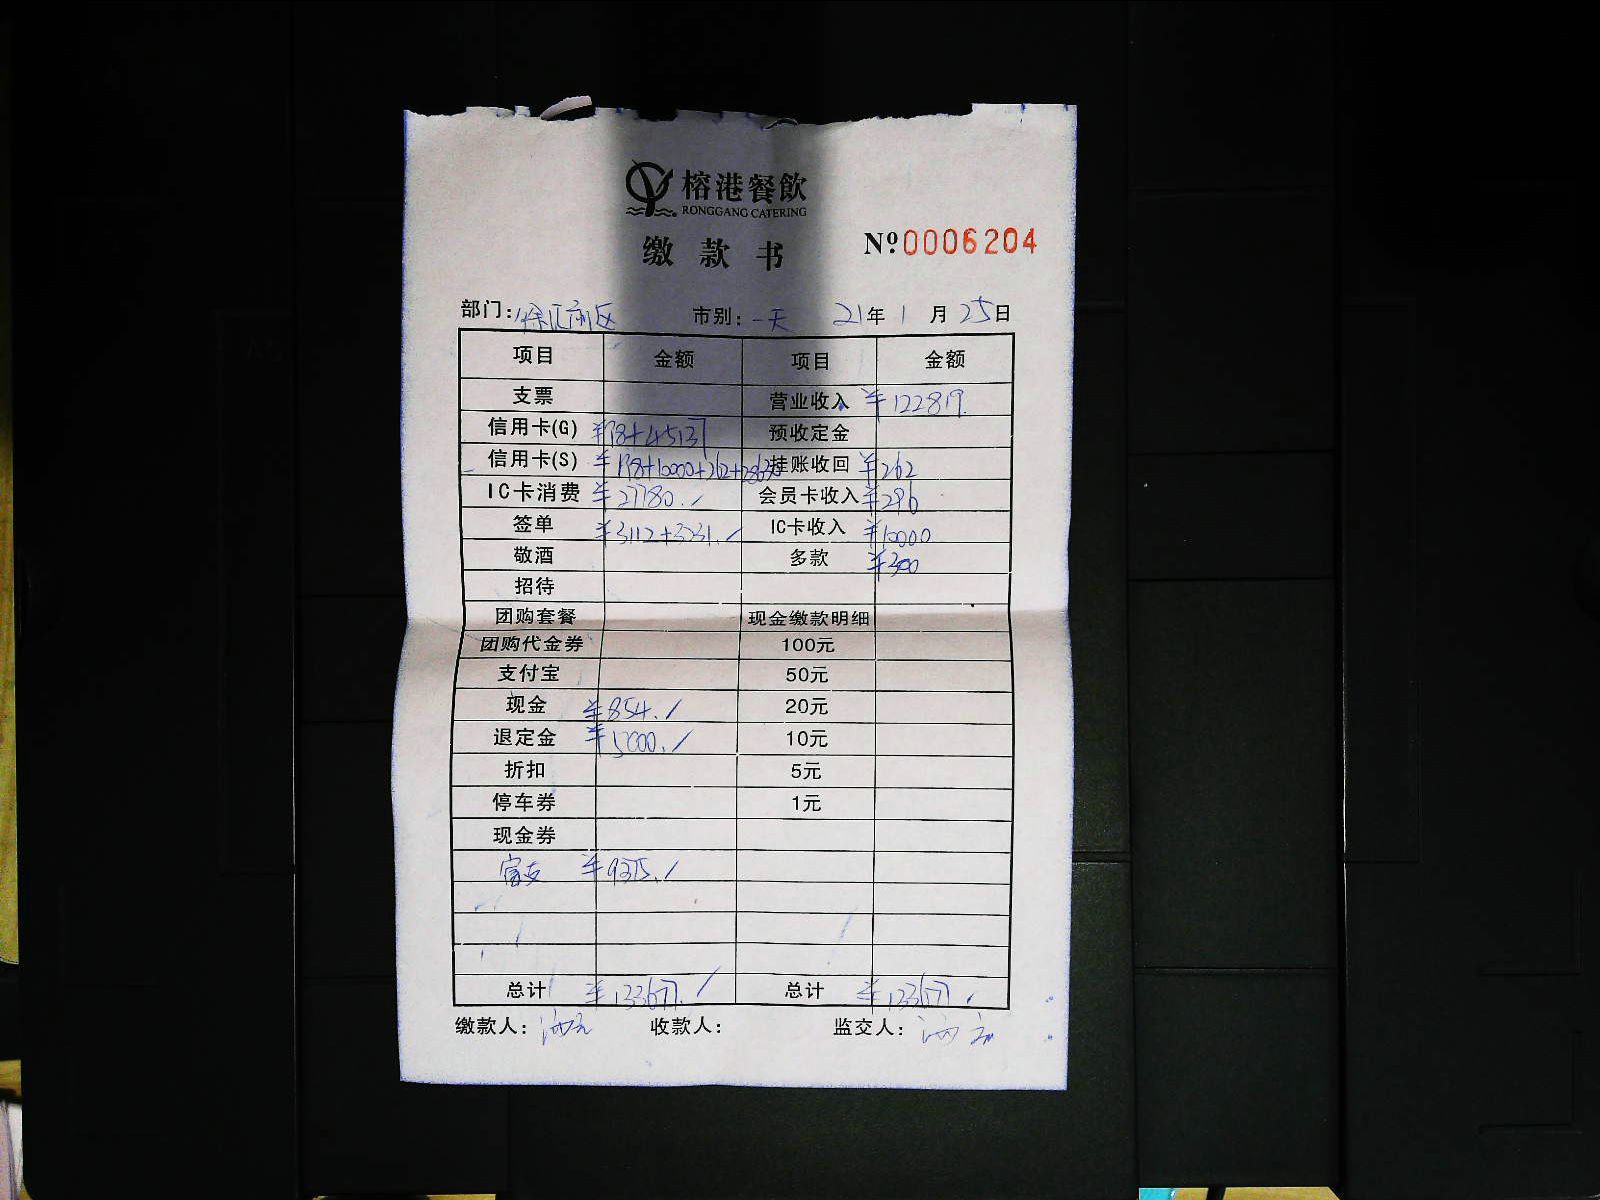 榕港餐飲
RONGGANG CATERING
缴款书 Nº0006204
部门: 市别: 一天 21年1月25日
项目 金额 项目 金额
支票 营业收入 ¥122819.
信用卡(G) ¥98+45137 预收定金
信用卡(S) ¥198+10000+262+28630 挂账收回 ¥262
IC卡消费 ¥27780./ 会员卡收入 ¥296
签单 ¥3112+3231./ IC卡收入 ¥10000
敬酒 多款 ¥300
招待
团购套餐 现金缴款明细
团购代金券 100元
支付宝 50元
现金 ¥854./ 20元
退定金 ¥5000./ 10元
折扣 5元
停车券 1元
现金券
富友 ¥9375./
总计 ¥133677./ 总计 ¥133677.
缴款人: 收款人: 监交人: